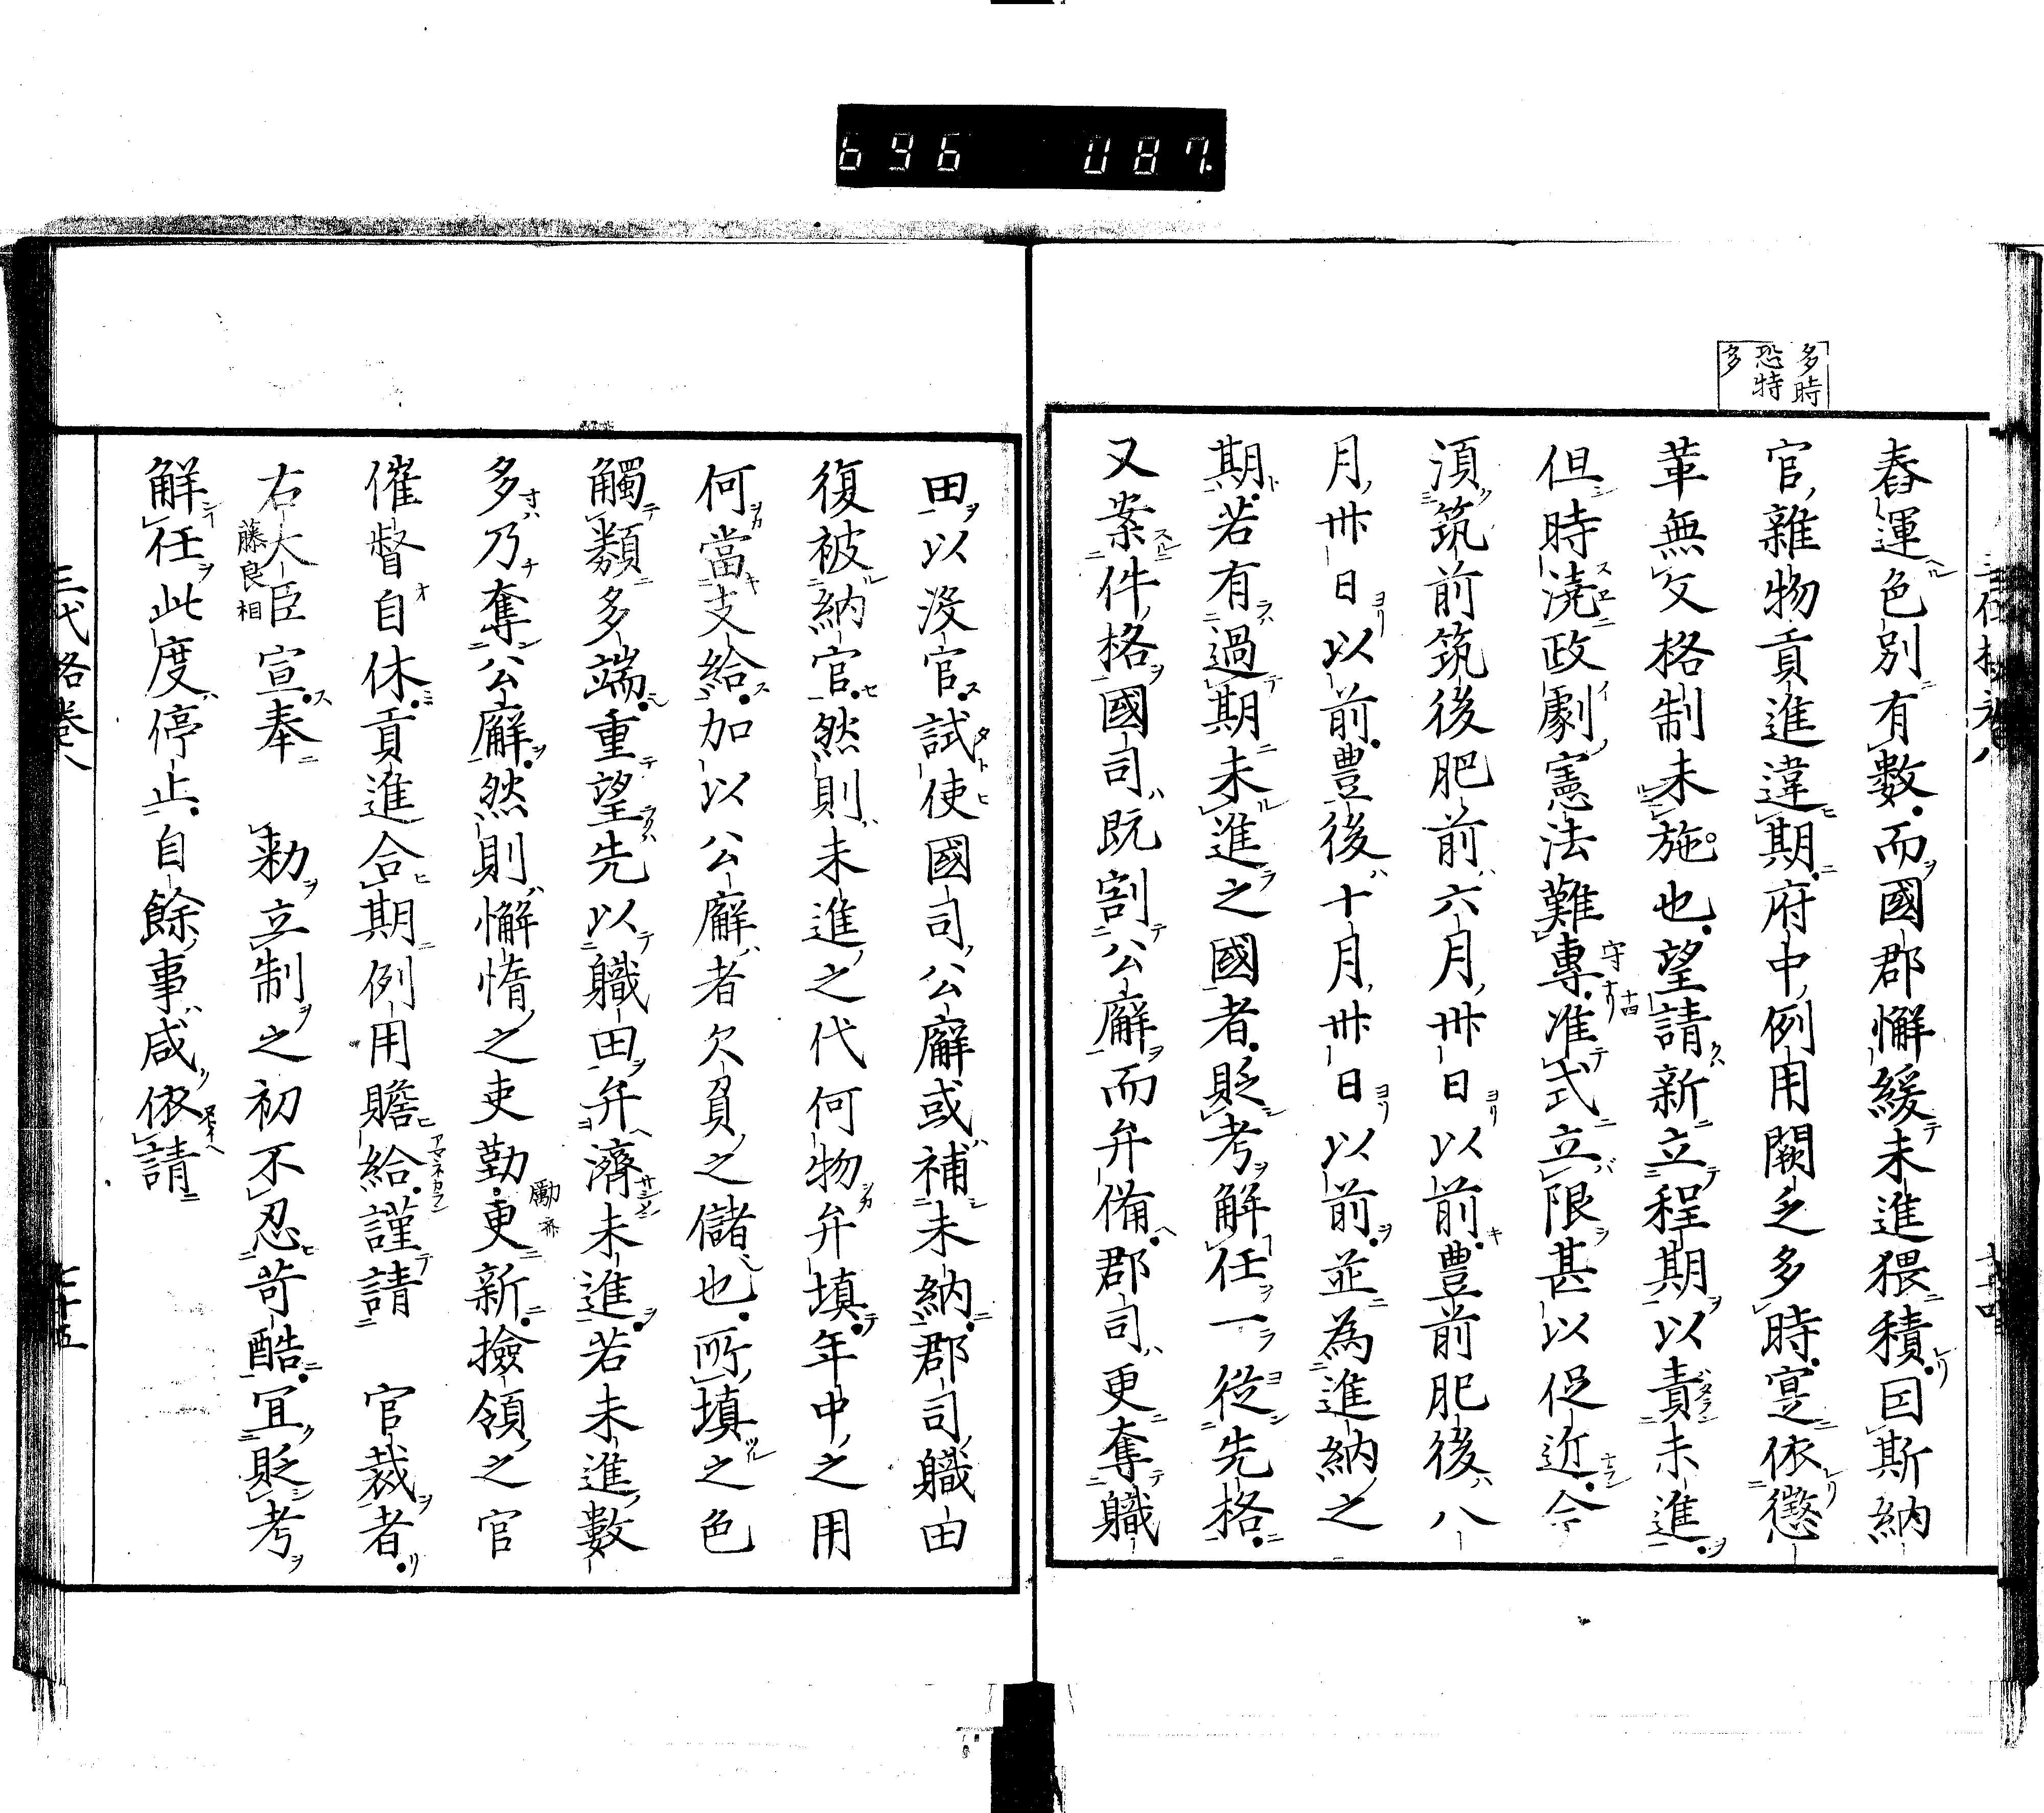 696 087
多時
恐特
多
舂運色別有數而國郡懈緩未進猥積因斯納
官雜物貢進違期府中例用闕乏多時寔依懲
革無文格制未施也望請新立程期以責未進
但時澆政劇憲法難專准式立限甚以促近今
須筑前筑後肥前六月卅日以前豊前肥後八
月卅日以前豊後十月卅日以前並為進納之
期若有過期未進之國者貶考解任一從先格
又案件格國司既割公廨而弁備郡司更奪職
田以沒官試使國司公廨或補未納郡司職田
復被納官然則未進之代何物弁填年中之用
何當支給加以公廨者欠負之儲也所填之色
觸類多端重望先以職田弁濟未進若未進數
多乃奪公廨然則懈惰之吏勤更新撿領之官
勵
催督自休貢進合期例用贍給謹請 官裁者
右大臣宣奉 勅立制之初不忍苛酷冝貶考
藤良相
解任此度停止自餘事咸依請
三代格卷八